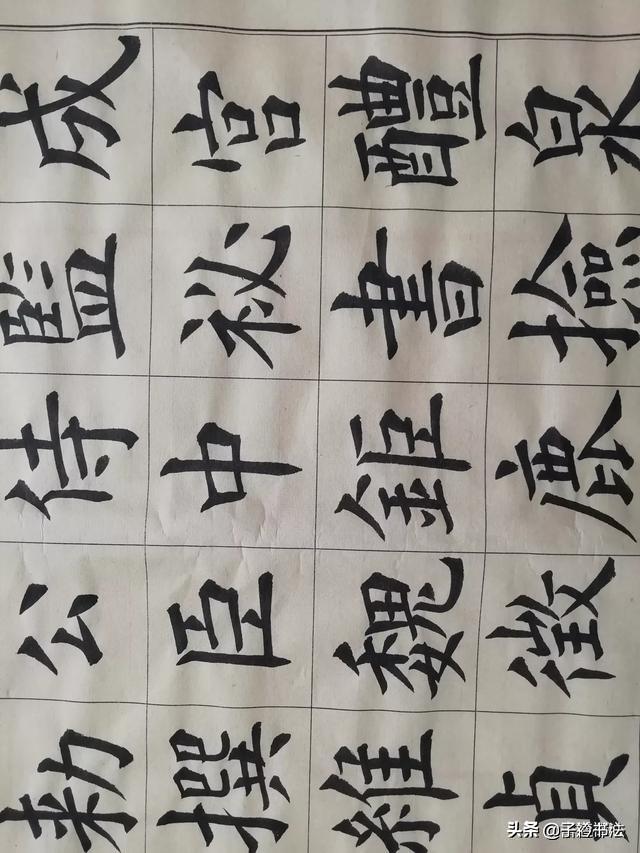 成宮醴泉
監秘書檢
侍中鉅鹿
公臣魏徵
勅撰維貞
头条 @子澄书法